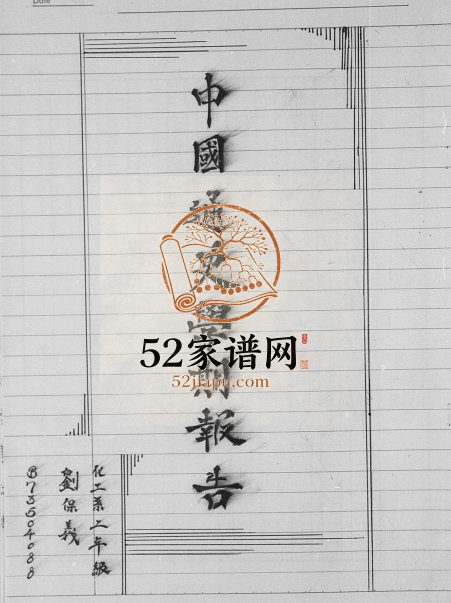 Date
中國通史學期報告
52家谱网
52jiapu.com
化工系二年級
劉保義
B73504088